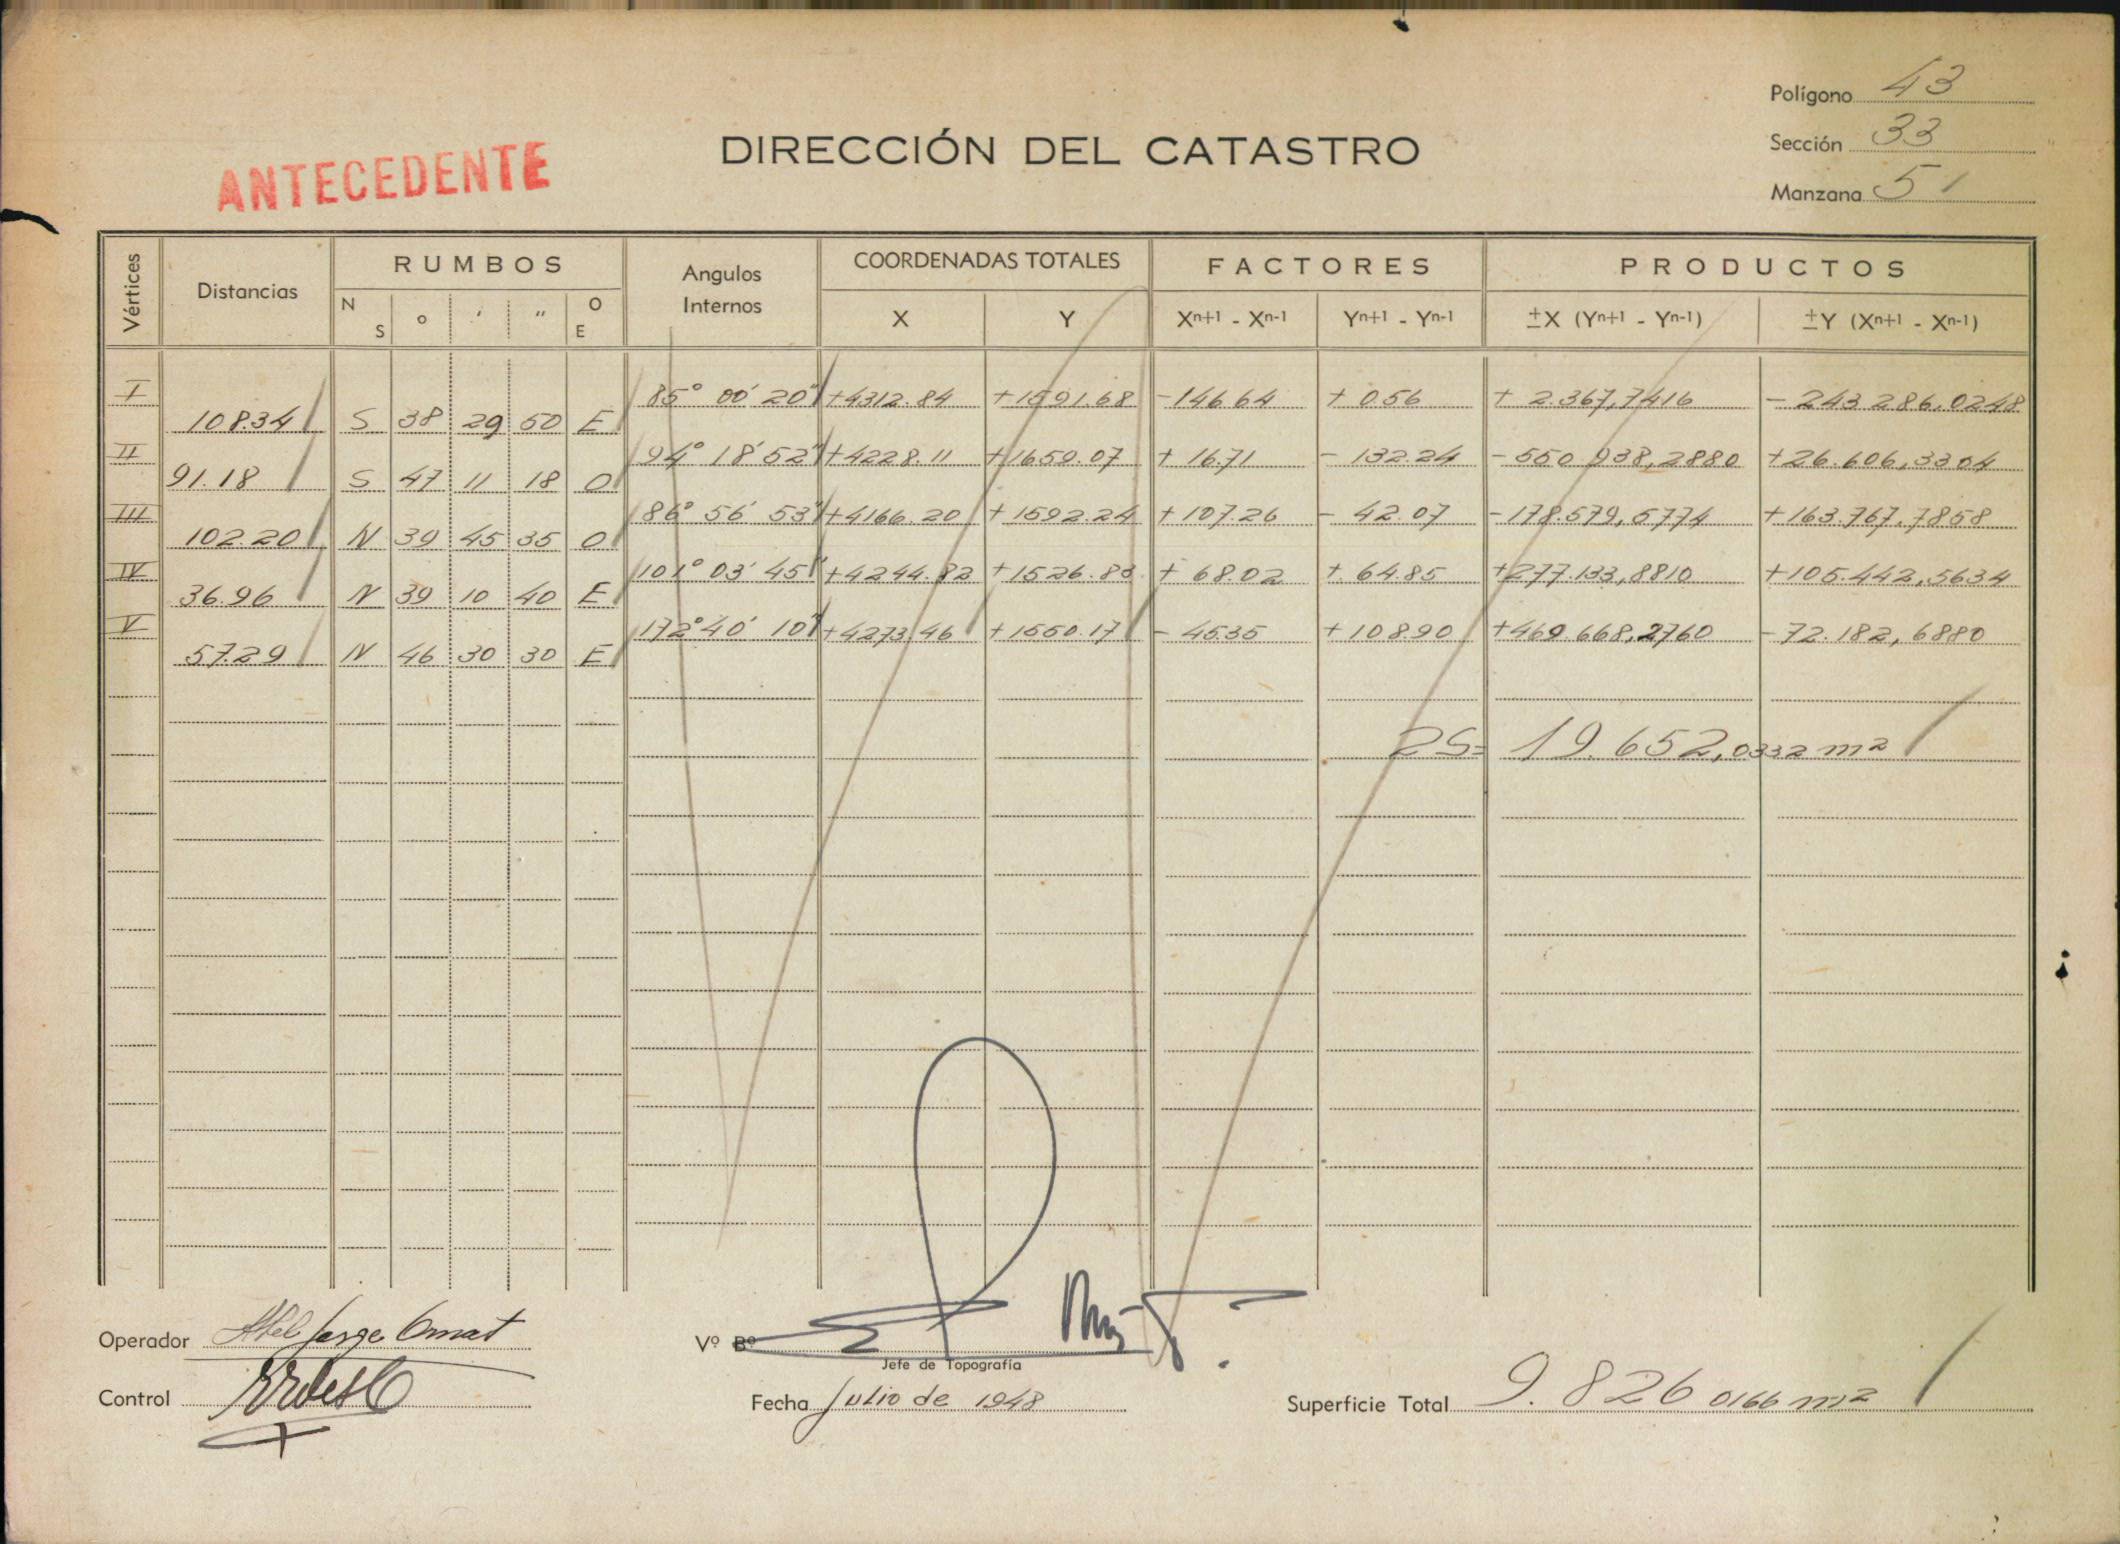 Polígono 43
DIRECCIÓN DEL CATASTRO
Sección 33
ANTECEDENTE
Manzana 51
Vértices Distancias RUMBOS Angulos Internos COORDENADAS TOTALES FACTORES PRODUCTOS
N S ° ' " O E X Y Xn+1 - Xn-1 Yn+1 - Yn-1 ±X (Yn+1 - Yn-1) ±Y (Xn+1 - Xn-1)
I 85° 00' 20" +4312.84 +1591.68 -146.64 + 0.56 + 2.367,7416 - 243.286,0248
108.34 S 38 29 50 E
II 94° 18' 52" +4228.11 +1659.07 + 16.71 - 132.24 -550.938,2880 +26.606,3304
91.18 S 47 11 18 O
III 86° 56' 53" +4166.20 +1592.24 +107.26 - 42.07 -178.579,5774 +163.767,7858
102.20 N 39 45 35 O
IV 101° 03' 45" +4244.82 +1526.83 + 68.02 + 64.85 +277.133,8810 +105.442,5634
36.96 N 39 10 40 E
V 172° 40' 10" +4273.46 +1550.17 - 45.35 +108.90 +469.668,2760 -72.182,6880
57.29 N 46 30 30 E
2S= 19.652,0332 m2
Operador Abel Jorge Omat
Vº Bº
Jefe de Topografía
Control
Fecha Julio de 1948
Superficie Total 9.826 0166 m2